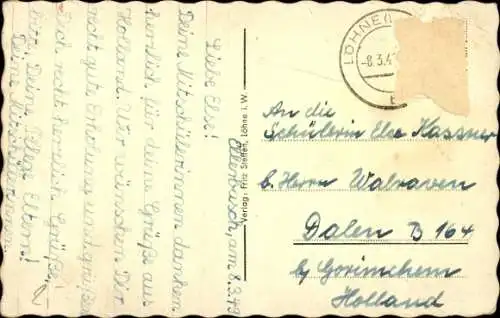 Obernbusch, am 8.3.49
Liebe Else!
Deine Mitschülerinnen danken
herzlich für deine Grüße aus
Holland. Wir wünschen Dir
recht gute Erholung und grüßen
Dich recht herzlich. Grüße
bitte Deine Pflege Eltern!
Deine Mitschülerinnen
Verlag: Fritz Steffen, Löhne i. W.
LÖHNE
-8.3.4
An die
Schülerin Else Kassner
b. Herrn Walraven
Dalen B 164
by Gorinchem
Holland